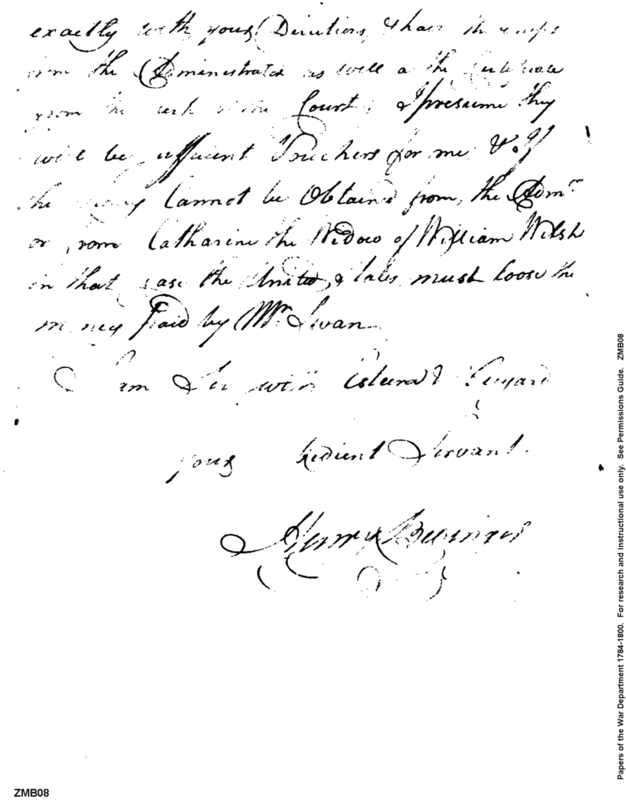 exactly with your Directions, & have the
from the Administrator as well a the Certificate
from the Clerk of the Court, I presume they
will be sufficient Vouchers for me & if
the money Cannot be Obtained from, the Admr
or from Catharine the Widow of William Welsh
in that case the United States must loose the
money Paid by Mr Swan
I am Sir with Esteem & Regard
your Obedient Servant.
Henry
Papers of the War Department 1784-1800. For research and instructional use only. See Permissions Guide. ZMB08
ZMB08